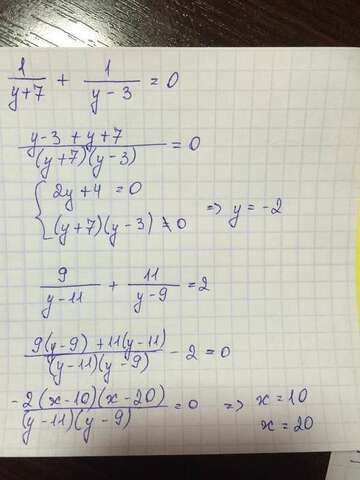 1/(y+7) + 1/(y-3) = 0
(y-3+y+7)/((y+7)(y-3)) = 0
{ 2y+4 = 0
(y+7)(y-3) ≠ 0 => y = -2
9/(y-11) + 11/(y-9) = 2
(9(y-9)+11(y-11))/((y-11)(y-9)) - 2 = 0
(-2(x-10)(x-20))/((y-11)(y-9)) = 0 => x = 10
x = 20